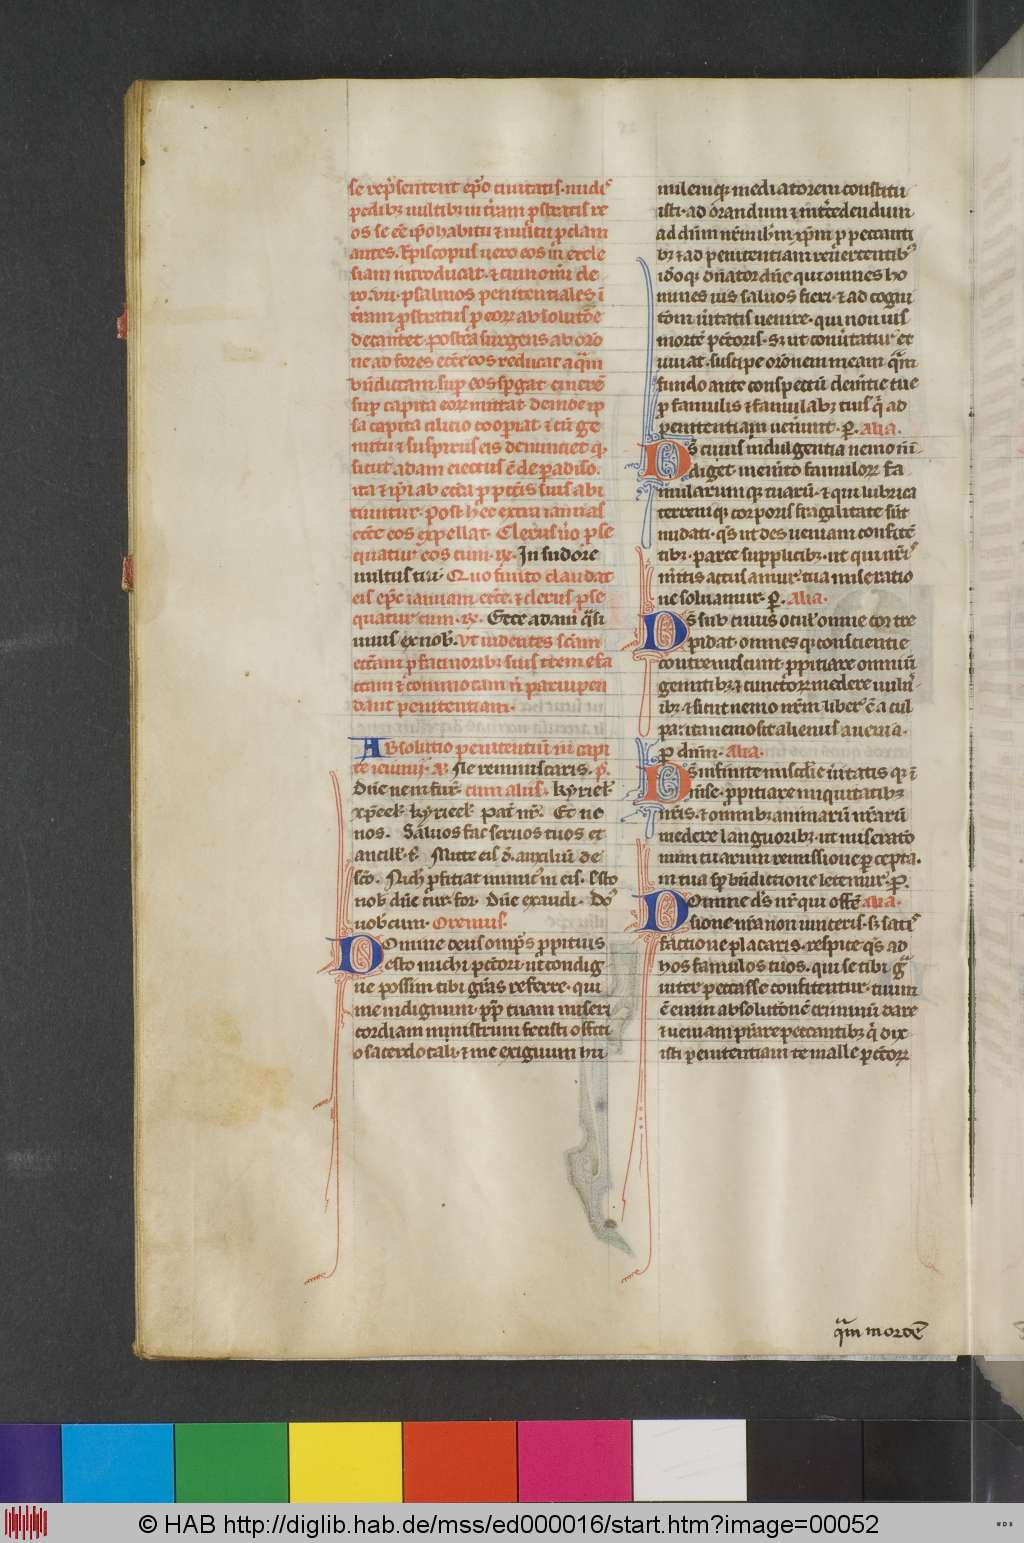 se rep̄sentent ep̄o ciuitatis. nudis
pedibꝫ uultibꝫ in t̄ram p̄stratis re
os se eē ip̄o habitu ⁊ uultu p̄clam
antes. Episcopus uero eos in eccle
siam introducat. ⁊ cum om̄i cle
ro. vii. psalmos penitentiales ī
t̄ram p̄stratus p̄ eoꝝ absolutōe
decantet. postea surgens ab orō
ne ad fores ecc̄e eos reducat aquā
b̄ndictam sup̄ eos sp̄gat. cinerē
sup̄ capita eoꝝ mittat. deinde ip
sa capita cilicio coop̄iat. ⁊ cū ge
mitu ⁊ suspiriis eis denunciet qꝫ
sicut adam eiectus ē de paradiso.
ita ⁊ ip̄i ab ecc̄ia p̄ pcc̄is suis abi
ciuntur. Post hec extra ianuas
ecc̄e eos expellat. Clerus ū̉o p̄se
quatur eos cum. ꝶ. In sudore
uultus tui. Quo finito claudat
eis ep̄c ianuam ecc̄e. ⁊ clerus p̄se
quatur cum. ꝶ. Ecce adam q̄si
unus ex nob̄. Ut uidentes sc̄am
ecc̄iam p̄ facinoribꝫ suis trem efa
ctam ⁊ commotam n̄ paruipen
dant penitentiam.
Absolutio penitentiū in capi
te ieiunij. A. Ne reminiscaris. p̄.
Dn̄e ne in fur̄. cum aliis. kyriel̄
xp̄eel̄ kyrieel̄ Pat̄ nr̄. Et ne
nos. Saluos fac seruos tuos et
ancill̄. t̄. Mitte eis d̄. auxiliū de
sc̄o. Nich̄ p̄ficiat inimic̄ in eis. Esto
nob̄ dn̄e tur̄. for̄. Dn̄e exaudi. Do
uobcum. Oremus.
Domine deus omp̄s p̄pitius
esto michi pcc̄ori. ut condig
ne possim tibi gr̄as referre. qui
me indignum. pp̄ tuam miseri
cordiam ministrum fecisti offici
o sacerdotali. ⁊ me exiguum hu
milemqꝫ mediatorem constitu
isti. ad orandum ⁊ int̄cedendum
ad dn̄m nr̄m ih̄m xp̄m p̄ peccanti
bꝫ ⁊ ad penitentiam reuertentibꝫ
ideoqꝫ dn̄ator dn̄e qui omnes ho
mines uis saluos fieri. ⁊ ad cogni
tōm ūitatis uenire. qui non uis
mortē pcc̄oris. sꝫ ut conūtatur et
uiuat. suscipe orōnem meam quā
fundo ante conspectū clem̄tie tue
p̄ famulis ⁊ famulabꝫ tuis q̉ ad
penitentiam uen̄unt. p̄. Alia.
Ds̄ cuius indulgentia nemo nō in
diget. mem̄to famuloꝝ fa
mularumqꝫ tuarū. ⁊ qui lubrica
terrenaqꝫ corporis fragilitate sūt
nudati. qs̄ ut des ueniam confitē
tibꝫ. parce supplicibꝫ. ut qui nr̄is
m̄itis accusamur tua miseratio
ne soluamur. p̄. Alia.
Ds̄ sub cuius ocul̉ omne cor tre
pidat. omnes qꝫ conscientie
contremiscunt. p̄pitiare omniū
gemitibꝫ. ⁊ cunctoꝝ medere uuln̄
ibꝫ. ⁊ sicut nemo nr̄m liber ē a cul
pa. ita nemo sit alienus a uenia.
p̄ dn̄m. Alia.
Ds̄ infinite misc̄die ūitatis qꝫ ī
m̄se. p̄pitiare iniquitatibꝫ
nr̄is. ⁊ omnibꝫ animarū nr̄arū
medere languoribꝫ. ut miserato
num tuarum remissione p̄cepta.
in tua sp̄ b̄ndictione letemur. p̄.
Domine ds̄ nr̄ qui offē Alia.
sione nr̄a non uinceris. sꝫ satis
factione placaris. respice qs̄ ad
hos famulos tuos. qui se tibi gͣ
uiter peccasse confitentur. tuum
ē enim absolutōnē criminū dare
⁊ ueniam prestare peccantibꝫ q̉ dix
isti penitentiam te malle pcc̄oꝝ
quā mortē
© HAB http://diglib.hab.de/mss/ed000016/start.htm?image=00052